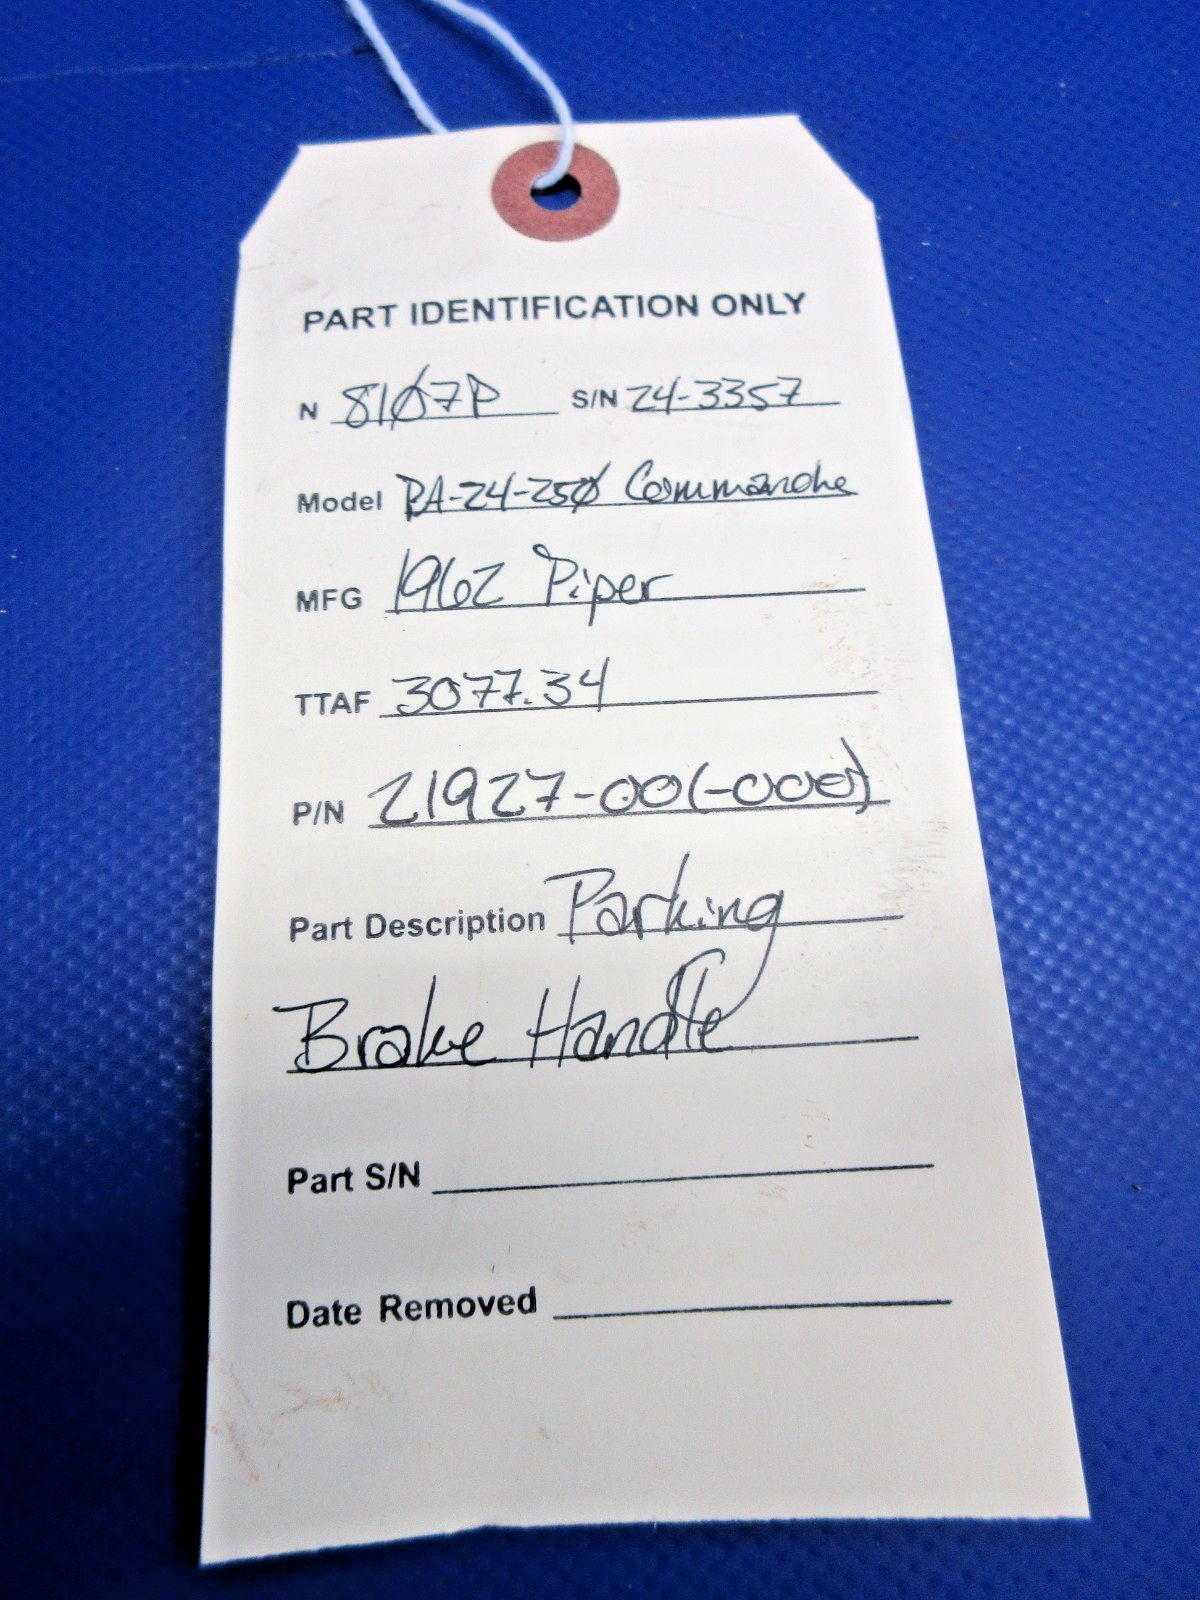 PART IDENTIFICATION ONLY
N 81Ø7P S/N 24-3357
Model PA-24-25Ø Commanche
MFG 1962 Piper
TTAF 3077.34
P/N 21927-00(-000)
Part Description Parking
Brake Handle
Part S/N
Date Removed